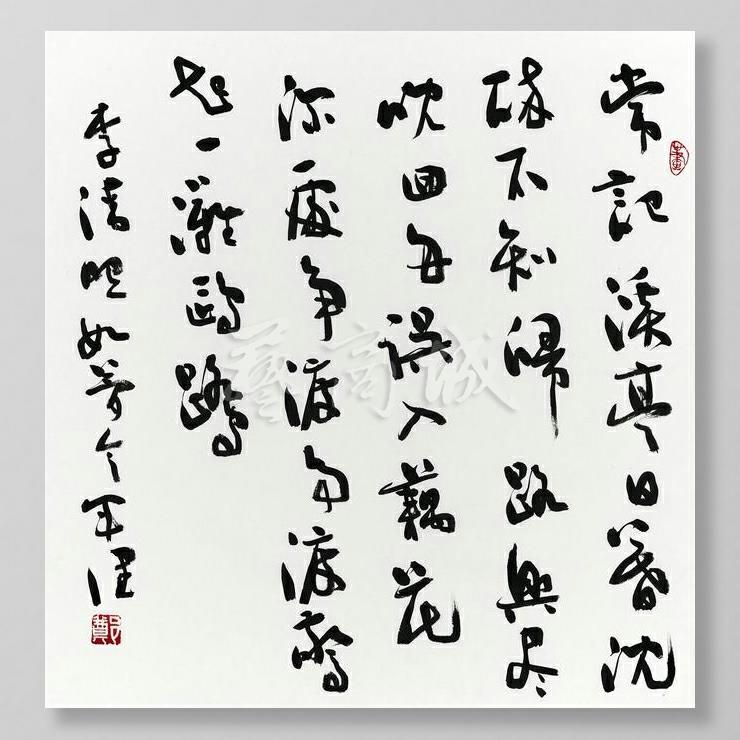 常記溪亭日暮沈
醉不知歸路興尽
晚回舟誤入藕花
深處争渡争渡驚
起一灘鷗鷺
李清照如夢令
藝商誠